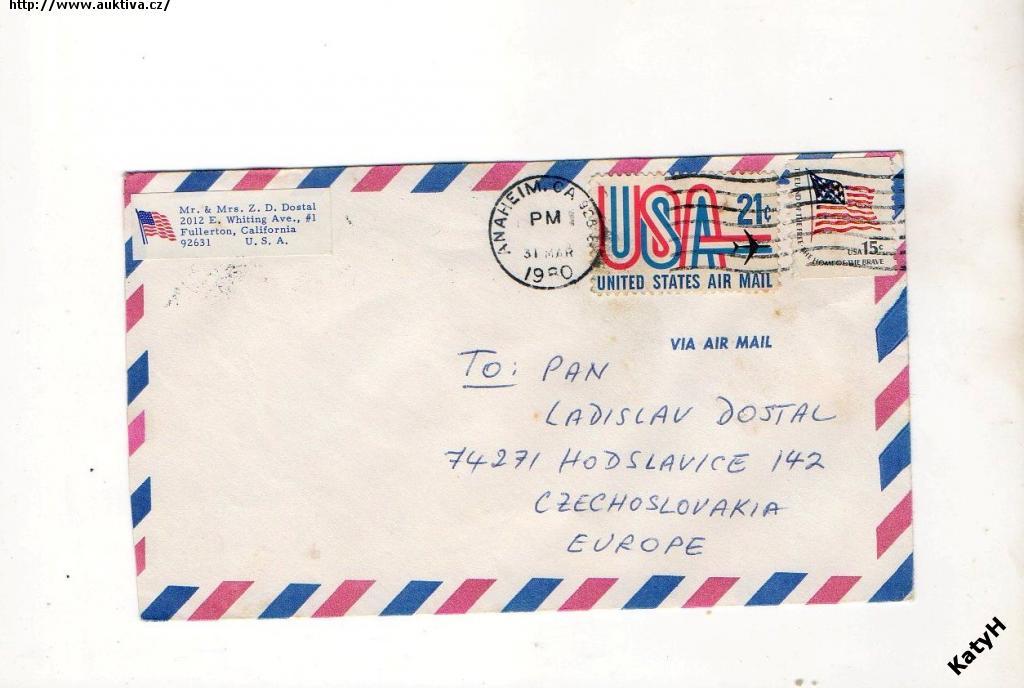 http://www.auktiva.cz/
Mr. & Mrs. Z. D. Dostal
2012 E. Whiting Ave., #1
Fullerton, California
92631 U. S. A.
ANAHEIM, CA
PM
31 MAR
1980
USA 21c
UNITED STATES AIR MAIL
USA 15c
HOME OF THE BRAVE
VIA AIR MAIL
TO: PAN
LADISLAV DOSTAL
74271 HODSLAVICE 142
CZECHOSLOVAKIA
EUROPE
KatyH